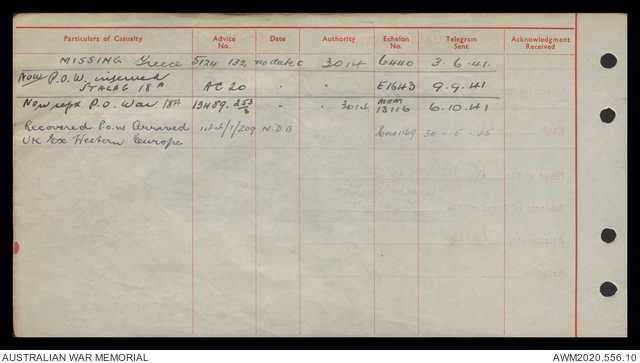 Particulars of Casualty Advice No. Date Authority Echelon No. Telegram Sent Acknowledgment Received
MISSING Greece 5124 132 no date c 3014 6440 3 6.41.
Now P.O.W. interned
STALAG 18A AC 20 " " E1643 9.9.41
Now repd P.O. War 18A 13459. 253/3 " 3014 mem 13116 6.10.41
Recovered P.o.w Arrived N.D.G
UK Ex Western Europe
AUSTRALIAN WAR MEMORIAL AWM2020.556.10